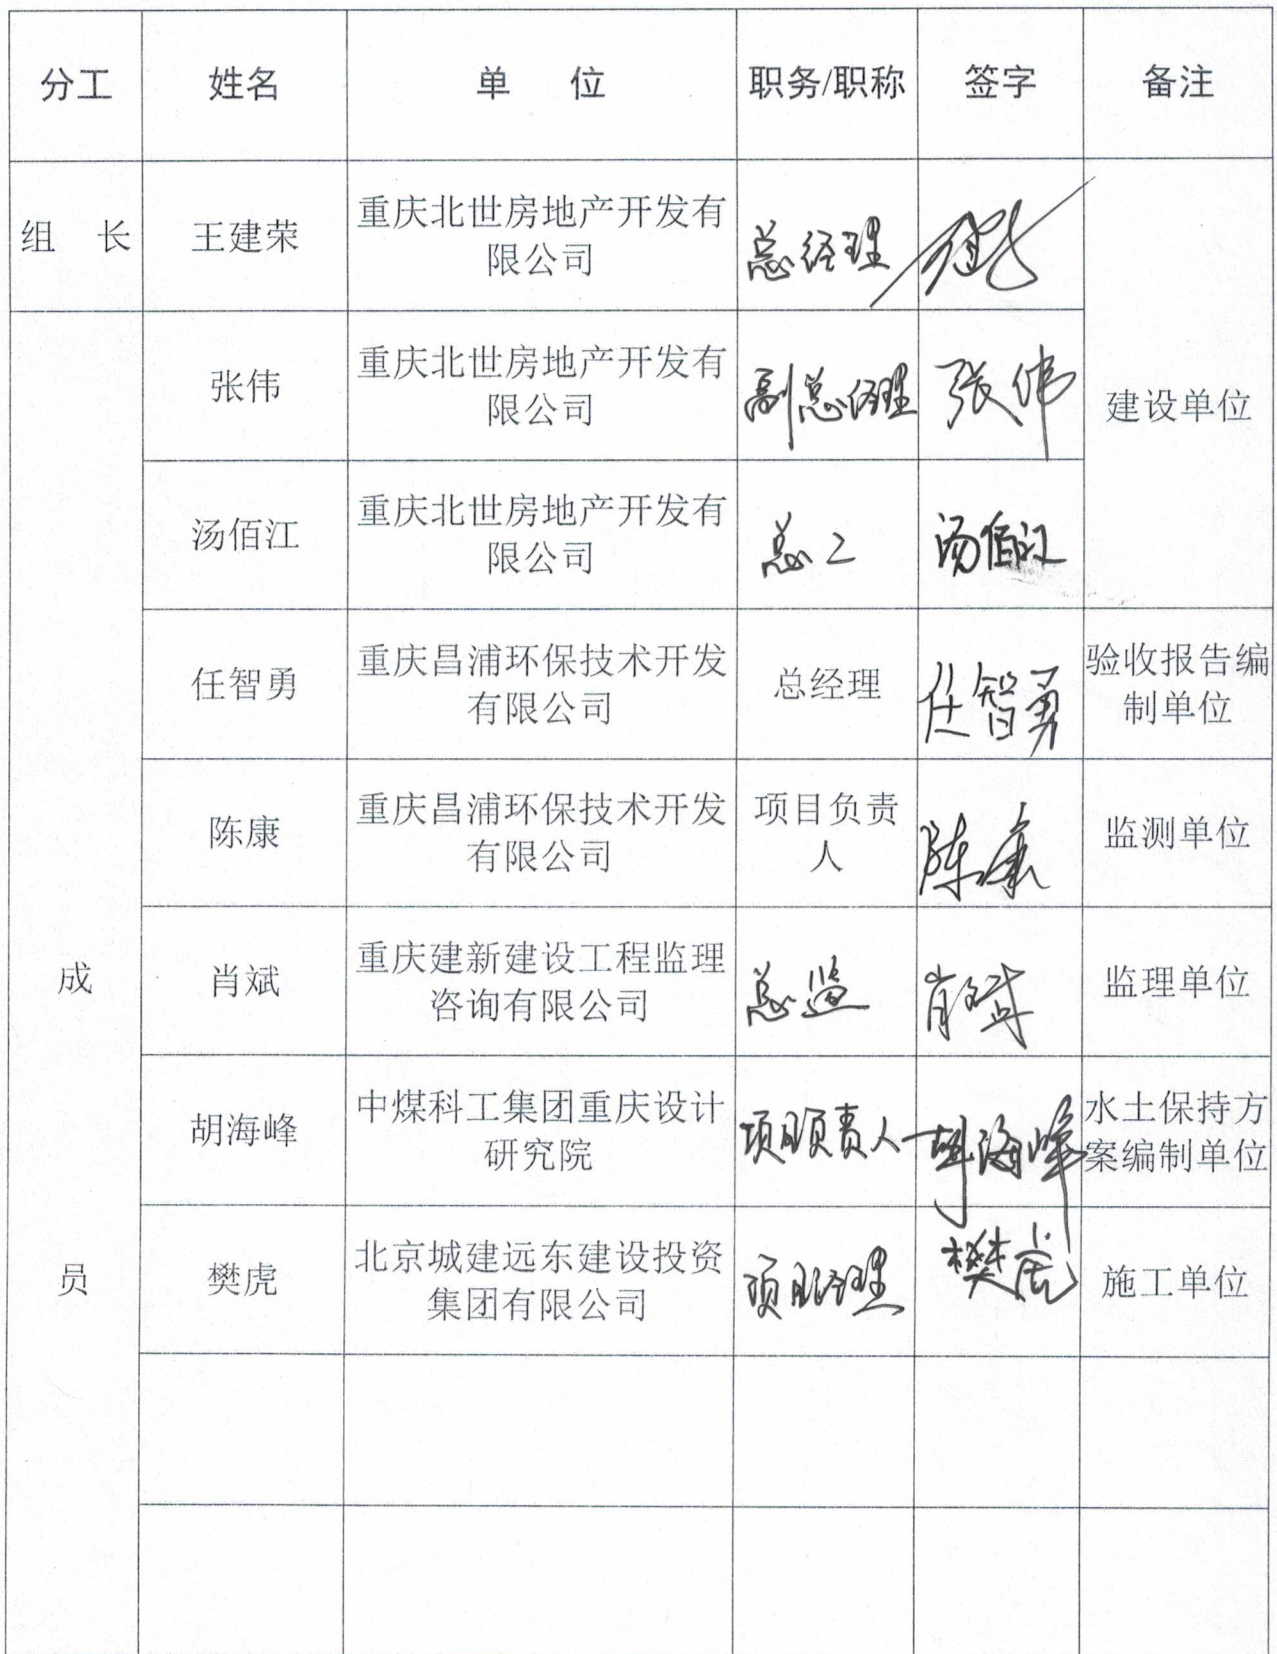 分工 姓名 单 位 职务/职称 签字 备注
组 长 王建荣 重庆北世房地产开发有
限公司 总经理
张伟 重庆北世房地产开发有
限公司 副总经理 张伟 建设单位
汤佰江 重庆北世房地产开发有
限公司 总工 汤佰江
任智勇 重庆昌浦环保技术开发
有限公司 总经理 任智勇 验收报告编
制单位
陈康 重庆昌浦环保技术开发
有限公司 项目负责
人 陈康 监测单位
成 肖斌 重庆建新建设工程监理
咨询有限公司 总监 肖斌 监理单位
胡海峰 中煤科工集团重庆设计
研究院 项目负责人 胡海峰 水土保持方
案编制单位
员 樊虎 北京城建远东建设投资
集团有限公司 项目经理 樊虎 施工单位